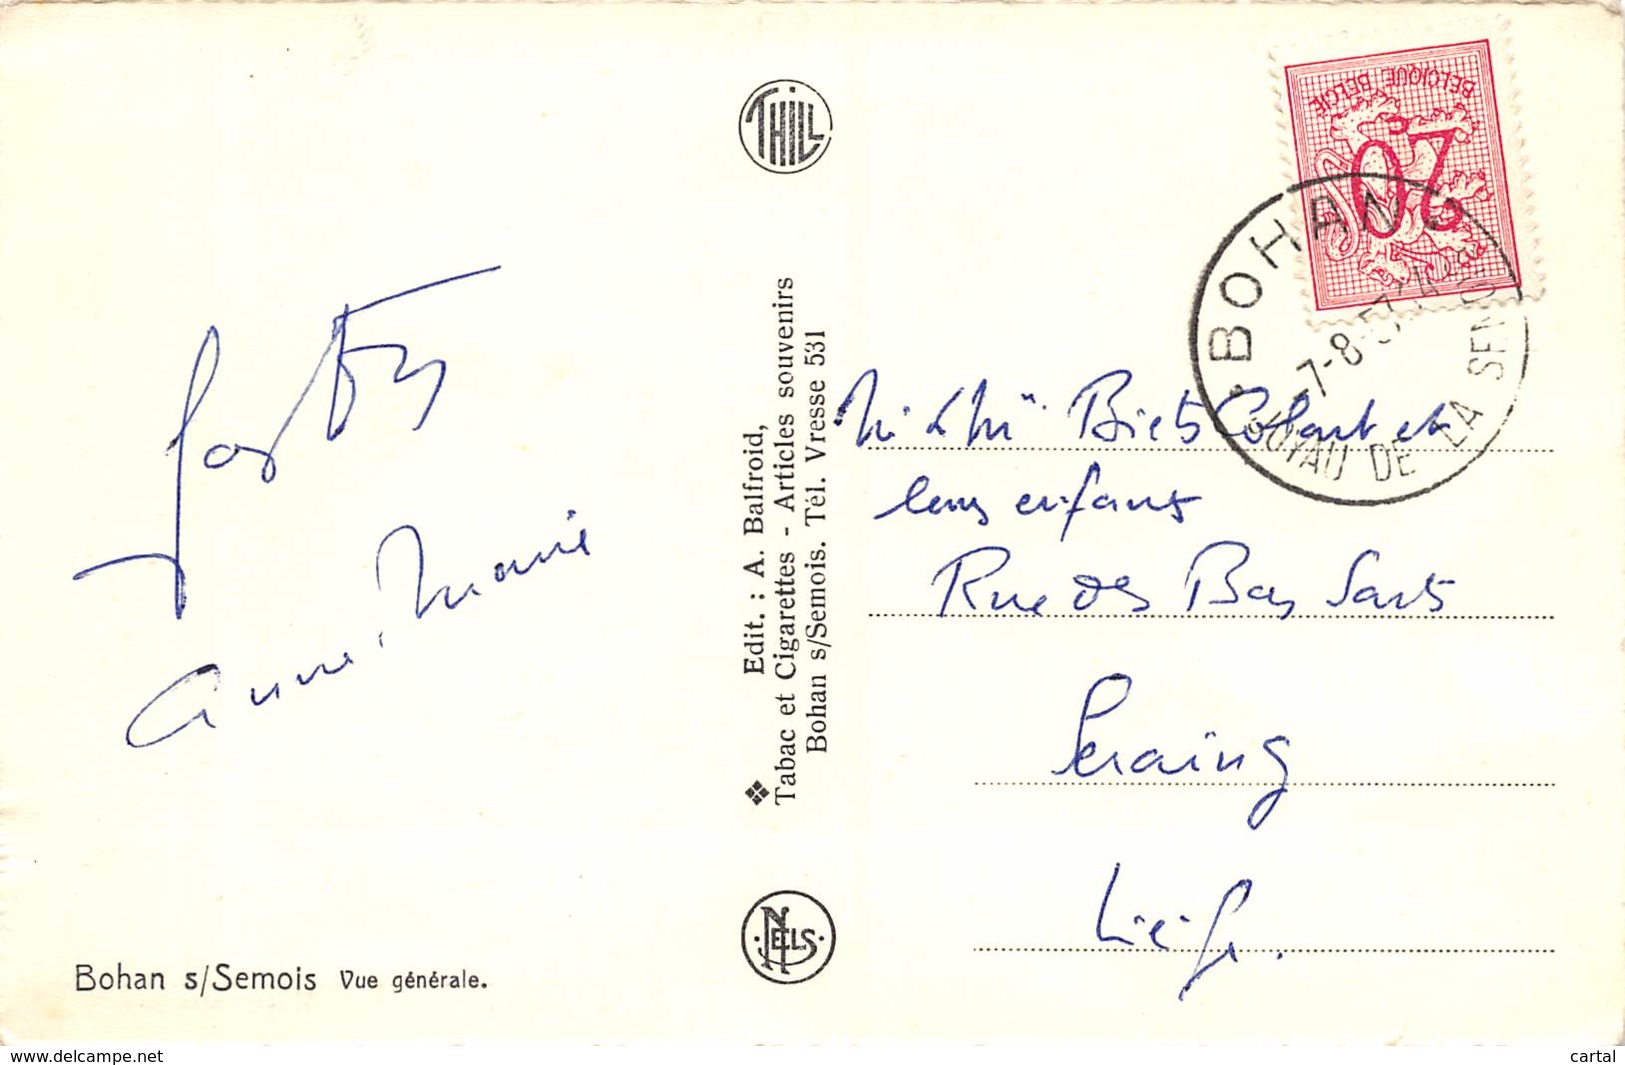 THILL
Edit. : A. Balfroid,
Tabac et Cigarettes - Articles souvenirs
Bohan s/Semois. Tél. Vresse 531
NELS
Bohan s/Semois Vue générale.
Anne-Marie
BELGIQUE BELGIË
20
BOHAN
-7-8-57
JOYAU DE LA SEMOIS
Mr & Mme Biets Colart et
leurs enfants
Rue des Bas Sarts
Seraing
Liège.
delcampe.net
cartal